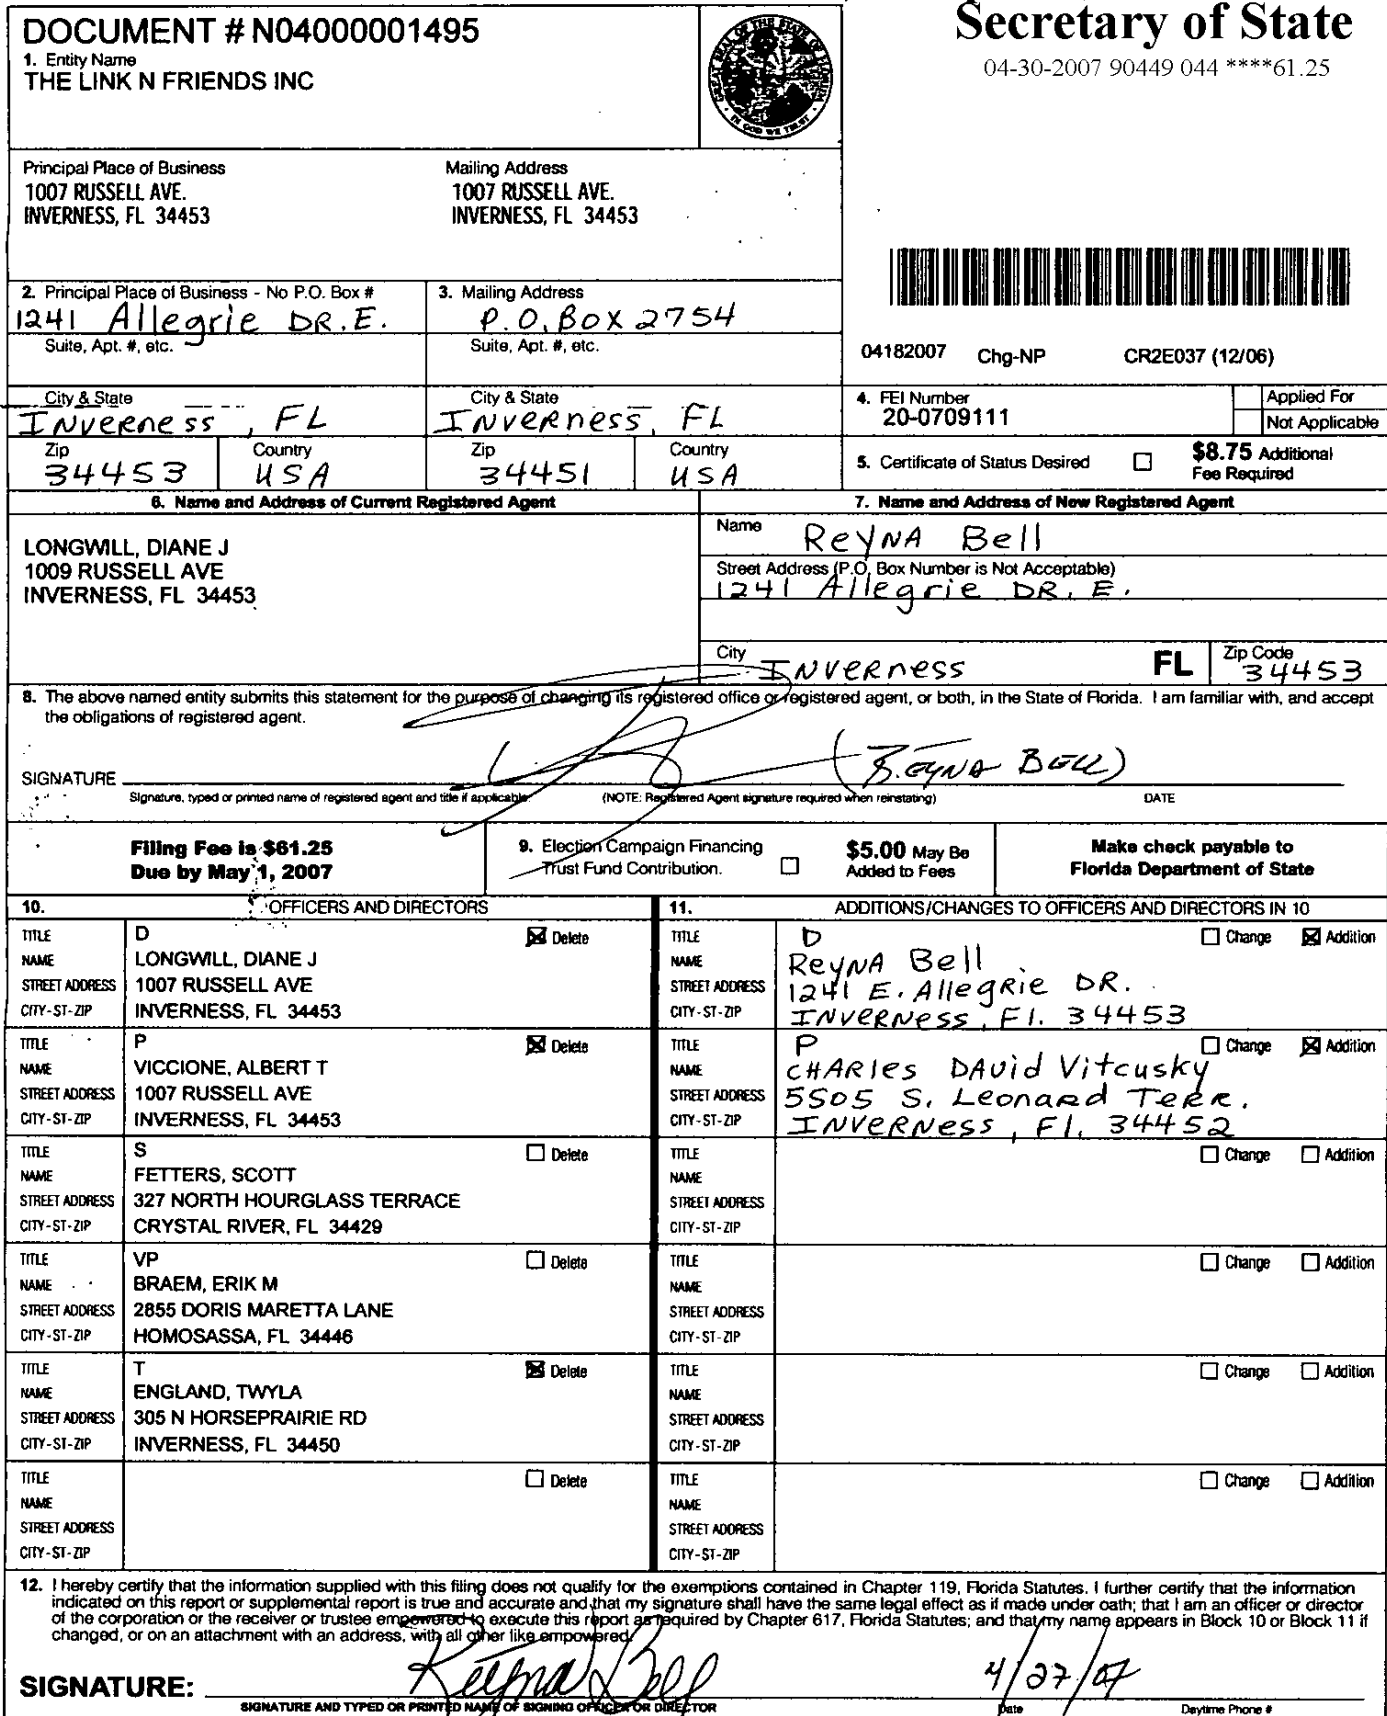 DOCUMENT # N04000001495
1. Entity Name
THE LINK N FRIENDS INC
GREAT SEAL OF THE STATE OF FLORIDA
IN GOD WE TRUST
Secretary of State
04-30-2007 90449 044 ****61.25
Principal Place of Business
1007 RUSSELL AVE.
INVERNESS, FL 34453
Mailing Address
1007 RUSSELL AVE.
INVERNESS, FL 34453
2. Principal Place of Business - No P.O. Box #
1241 Allegrie DR. E.
Suite, Apt. #, etc.
City & State
Inverness, FL
Zip
34453
Country
USA
3. Mailing Address
P.O. Box 2754
Suite, Apt. #, etc.
City & State
Inverness, FL
Zip
34451
Country
USA
04182007 Chg-NP CR2E037 (12/06)
4. FEI Number
20-0709111
Applied For
Not Applicable
5. Certificate of Status Desired
$8.75 Additional
Fee Required
6. Name and Address of Current Registered Agent
LONGWILL, DIANE J
1009 RUSSELL AVE
INVERNESS, FL 34453
7. Name and Address of New Registered Agent
Name
ReyNA Bell
Street Address (P.O. Box Number is Not Acceptable)
1241 Allegrie DR. E.
City
INVerNess
FL
Zip Code
34453
8. The above named entity submits this statement for the purpose of changing its registered office or registered agent, or both, in the State of Florida. I am familiar with, and accept
the obligations of registered agent.
SIGNATURE
(REYNA BELL)
Signature, typed or printed name of registered agent and title if applicable.
(NOTE: Registered Agent signature required when reinstating)
DATE
Filing Fee is $61.25
Due by May 1, 2007
9. Election Campaign Financing
Trust Fund Contribution.
$5.00 May Be
Added to Fees
Make check payable to
Florida Department of State
10. OFFICERS AND DIRECTORS
TITLE D Delete
NAME LONGWILL, DIANE J
STREET ADDRESS 1007 RUSSELL AVE
CITY-ST-ZIP INVERNESS, FL 34453
TITLE P Delete
NAME VICCIONE, ALBERT T
STREET ADDRESS 1007 RUSSELL AVE
CITY-ST-ZIP INVERNESS, FL 34453
TITLE S Delete
NAME FETTERS, SCOTT
STREET ADDRESS 327 NORTH HOURGLASS TERRACE
CITY-ST-ZIP CRYSTAL RIVER, FL 34429
TITLE VP Delete
NAME BRAEM, ERIK M
STREET ADDRESS 2855 DORIS MARETTA LANE
CITY-ST-ZIP HOMOSASSA, FL 34446
TITLE T Delete
NAME ENGLAND, TWYLA
STREET ADDRESS 305 N HORSEPRAIRIE RD
CITY-ST-ZIP INVERNESS, FL 34450
TITLE Delete
NAME
STREET ADDRESS
CITY-ST-ZIP
11. ADDITIONS/CHANGES TO OFFICERS AND DIRECTORS IN 10
TITLE D Change Addition
NAME ReyNA Bell
STREET ADDRESS 1241 E. Allegrie DR.
CITY-ST-ZIP INVerNess, Fl. 34453
TITLE P Change Addition
NAME CHARles DAvid Vitcusky
STREET ADDRESS 5505 S. Leonard Terr.
CITY-ST-ZIP INVerNess, Fl. 34452
TITLE Change Addition
NAME
STREET ADDRESS
CITY-ST-ZIP
TITLE Change Addition
NAME
STREET ADDRESS
CITY-ST-ZIP
TITLE Change Addition
NAME
STREET ADDRESS
CITY-ST-ZIP
TITLE Change Addition
NAME
STREET ADDRESS
CITY-ST-ZIP
12. I hereby certify that the information supplied with this filing does not qualify for the exemptions contained in Chapter 119, Florida Statutes. I further certify that the information
indicated on this report or supplemental report is true and accurate and that my signature shall have the same legal effect as if made under oath; that I am an officer or director
of the corporation or the receiver or trustee empowered to execute this report as required by Chapter 617, Florida Statutes; and that my name appears in Block 10 or Block 11 if
changed, or on an attachment with an address, with all other like empowered.
SIGNATURE: Reyna Bell 4/27/07
SIGNATURE AND TYPED OR PRINTED NAME OF SIGNING OFFICER OR DIRECTOR
Date
Daytime Phone #